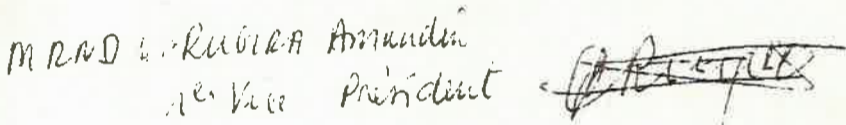 MRND RUGIRA Amandin
1er Vice Président